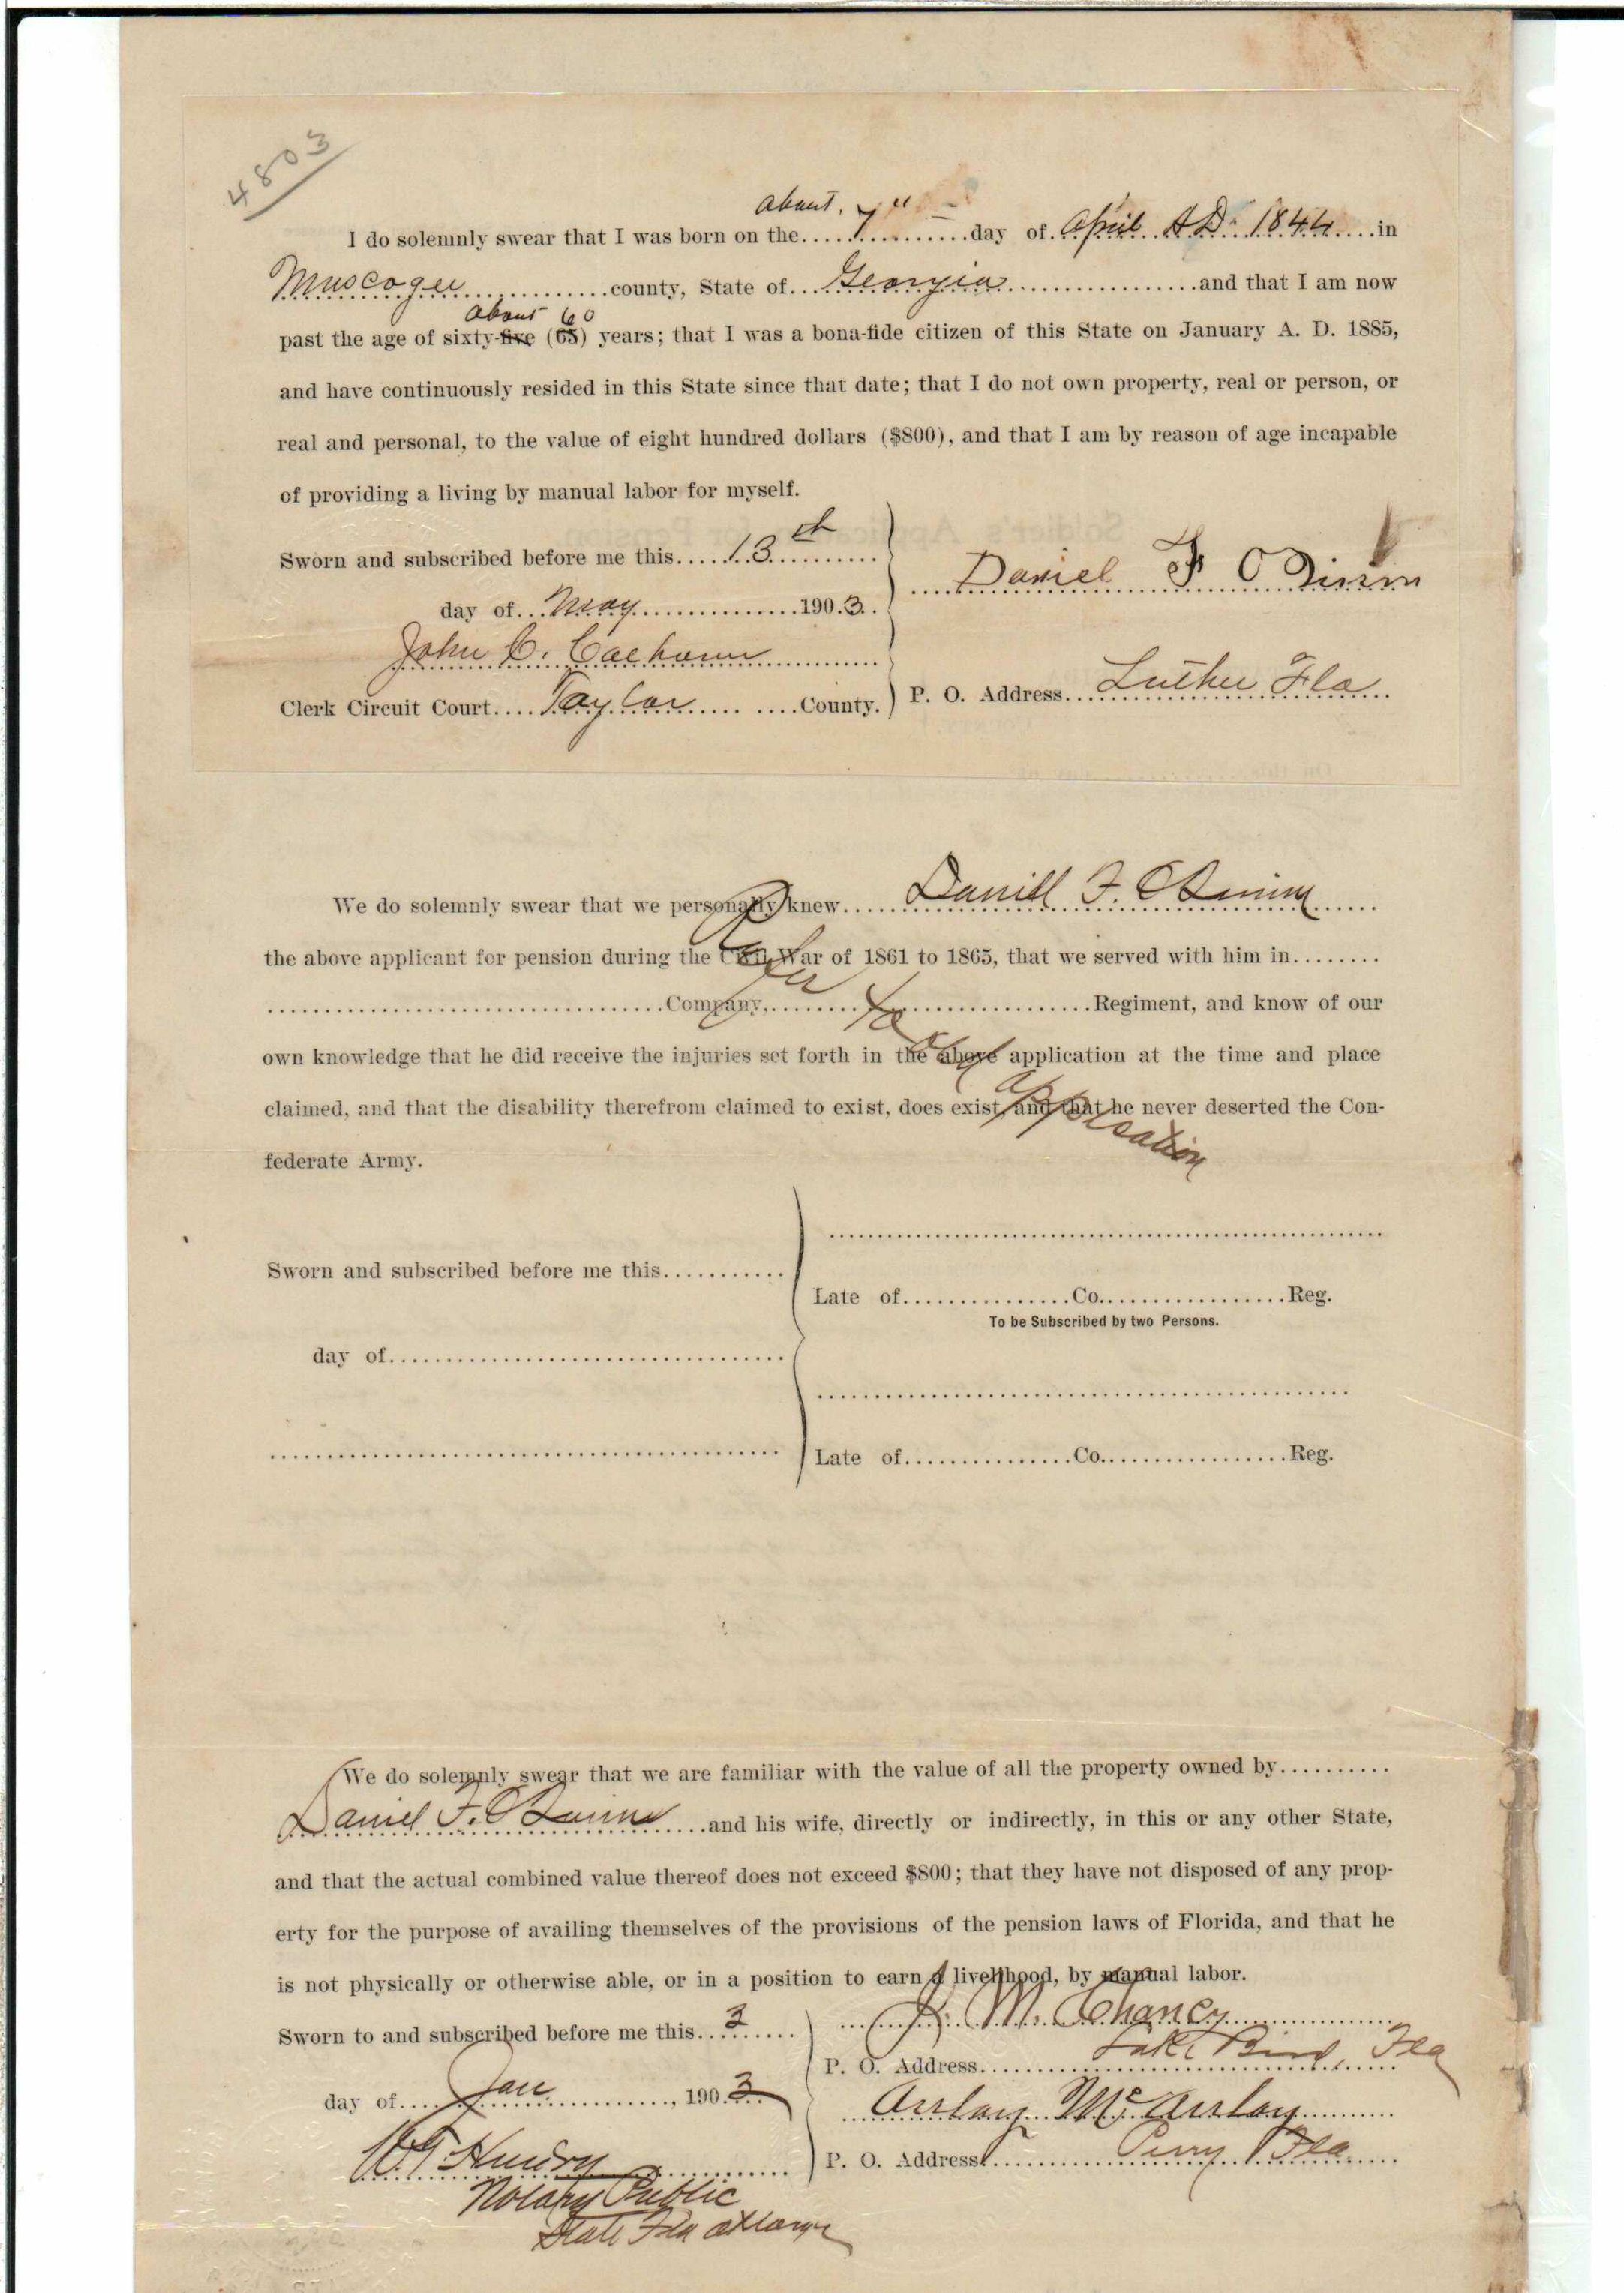 4803
about
I do solemnly swear that I was born on the.....7"..........day of. April A D. 1844....in
Muscogee..............county, State of...Georgia..................and that I am now
about 60
past the age of sixty-five (65) years; that I was a bona-fide citizen of this State on January A. D. 1885,
and have continuously resided in this State since that date; that I do not own property, real or person, or
real and personal, to the value of eight hundred dollars ($800), and that I am by reason of age incapable
of providing a living by manual labor for myself.
Sworn and subscribed before me this.....13th..........
Daniel F O Quinn
day of...May...............190.3..
John C. Calhoun
Clerk Circuit Court....Taylor...... ....County.
P. O. Address...Luther Fla..
We do solemnly swear that we personally knew.....Daniel F. O Quinn......
the above applicant for pension during the Civil War of 1861 to 1865, that we served with him in........
....................................Company,........................................Regiment, and know of our
own knowledge that he did receive the injuries set forth in the above application at the time and place
claimed, and that the disability therefrom claimed to exist, does exist, and that he never deserted the Con-
federate Army.
Refer to old application
Sworn and subscribed before me this...........
Late of................Co..................Reg.
To be Subscribed by two Persons.
day of....................................
Late of................Co..................Reg.
We do solemnly swear that we are familiar with the value of all the property owned by..........
Daniel F. O Quinn...and his wife, directly or indirectly, in this or any other State,
and that the actual combined value thereof does not exceed $800; that they have not disposed of any prop-
erty for the purpose of availing themselves of the provisions of the pension laws of Florida, and that he
is not physically or otherwise able, or in a position to earn a livelihood, by manual labor.
Sworn to and subscribed before me this..3......
M. Chaney
P. O. Address...Lake Bird, Fla
day of....Jan............, 190.3...
Ansley McAnsley
W T Hendry
P. O. Address...Perry Fla....
Notary Public
State Fla at Large